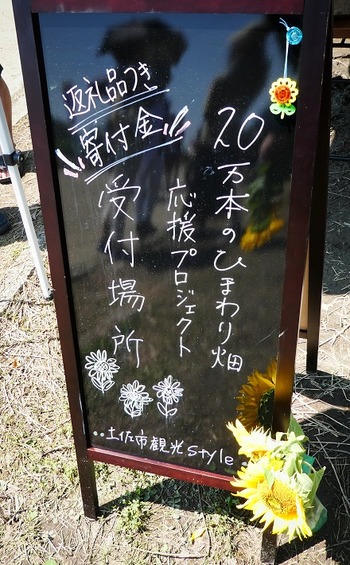 20万本のひまわり畑
応援プロジェクト
返礼品つき
寄付金
受付場所
土佐市観光Style